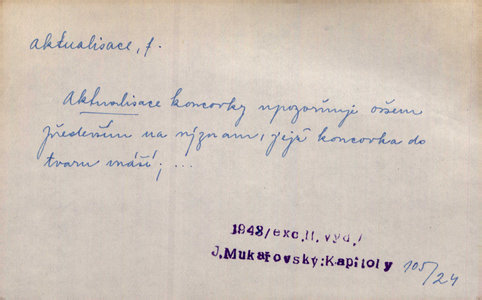 aktualisace, f.
Aktualisace koncovky upozorňuje ovšem
především na význam, jejž koncovka do
tvaru vnáší; ...
1948/exc.II.vyd./
J.Mukařovský:Kapitoly 105/24